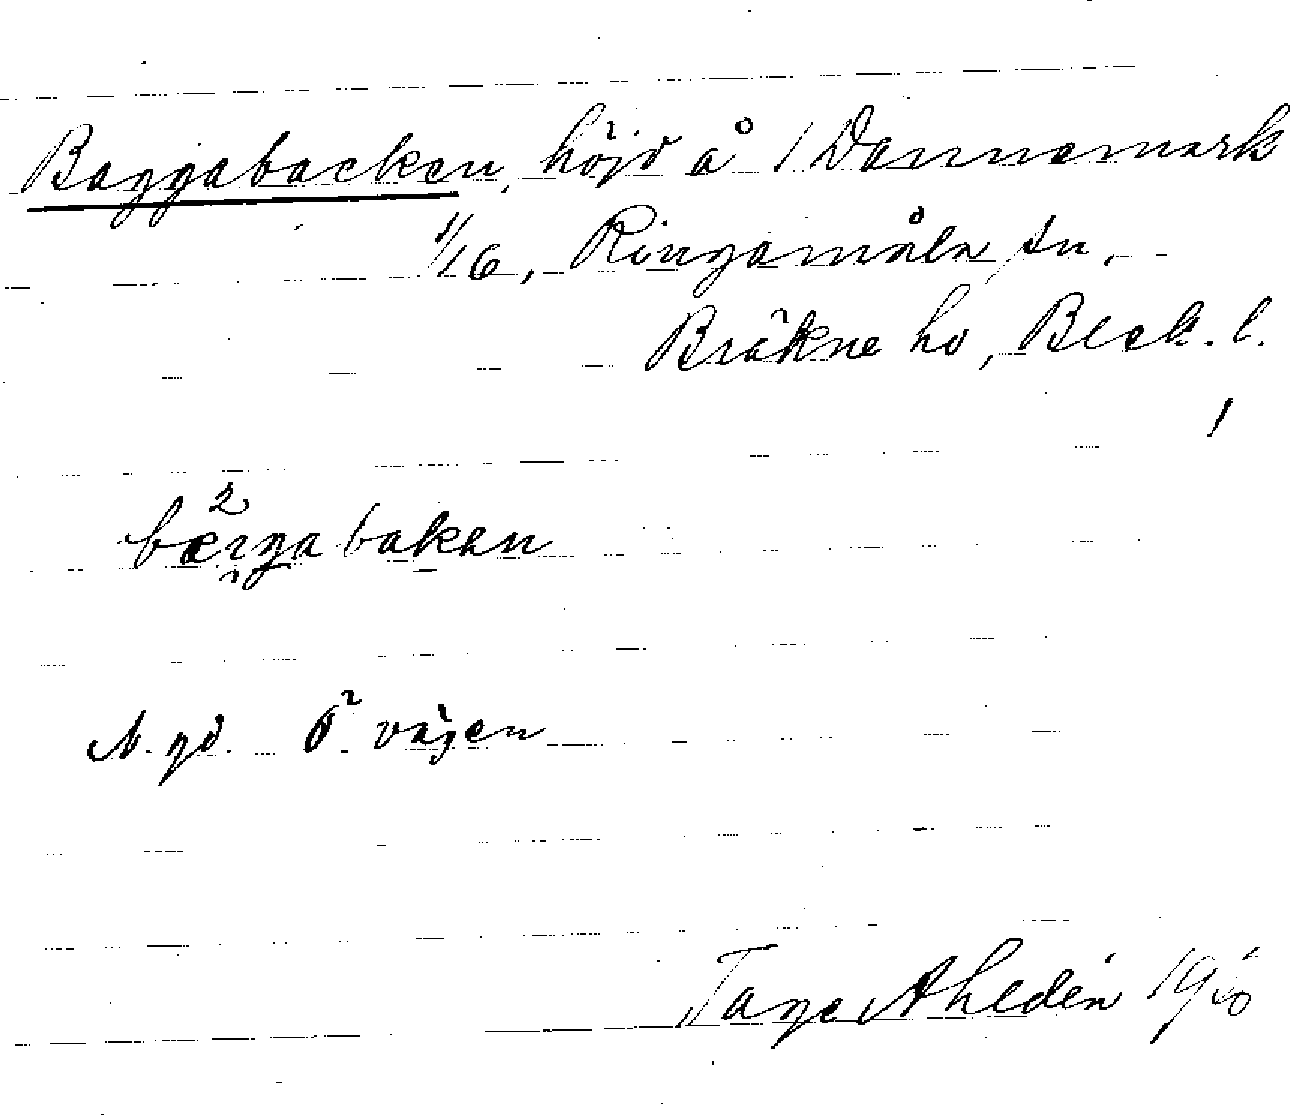 Baggabacken, höjd å 1 Dannemark
1/16, Ringamåla sn,
Bräkne hd, Blek. l.
bærgabaken
N. gd. Ö. vägen
Tage Ahldén